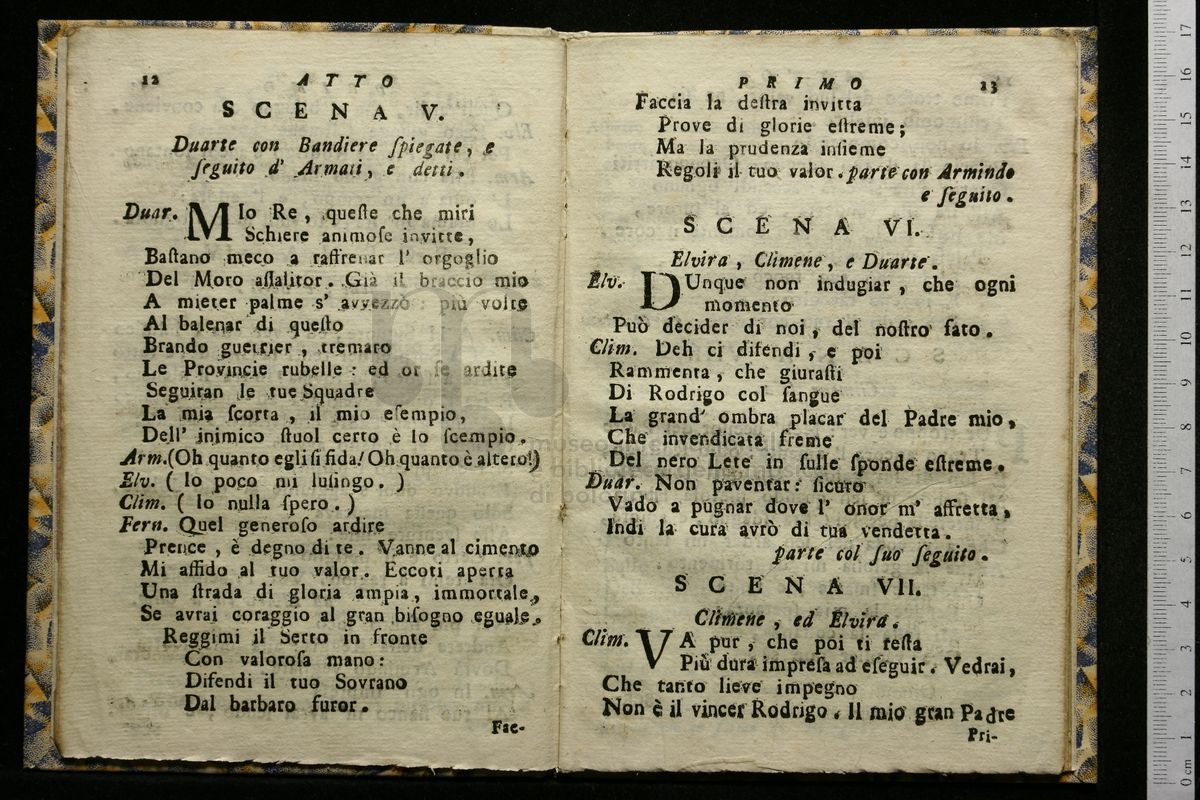 12 ATTO
SCENA V.
Duarte con Bandiere ſpiegate, e
ſeguito d' Armati, e detti.
Duar. MIo Re, queſte che miri
Schiere animoſe invitte,
Baſtano meco a raffrenar l' orgoglio
Del Moro aſſalitor. Già il braccio mio
A mieter palme s' avvezzò: più volte
Al balenar di queſto
Brando guerrier, tremaro
Le Provincie rubelle: ed or ſe ardite
Seguiran le tue Squadre
La mia ſcorta, il mio eſempio,
Dell' inimico ſtuol certo è lo ſcempio.
Arm. (Oh quanto egli ſi fida! Oh quanto è altero!)
Elv. ( Io poco mi luſingo. )
Clim. ( Io nulla ſpero. )
Fern. Quel generoſo ardire
Prence, è degno di te. Vanne al cimento
Mi affido al tuo valor. Eccoti aperta
Una ſtrada di gloria ampia, immortale,
Se avrai coraggio al gran biſogno eguale.
Reggimi il Serto in fronte
Con valoroſa mano:
Difendi il tuo Sovrano
Dal barbaro furor.
Fac-
PRIMO 13
Faccia la deſtra invitta
Prove di glorie eſtreme;
Ma la prudenza inſieme
Regoli il tuo valor. parte con Armindo
e ſeguito.
SCENA VI.
Elvira, Climene, e Duarte.
Elv. DUnque non indugiar, che ogni
momento
Può decider di noi, del noſtro fato.
Clim. Deh ci difendi, e poi
Rammenta, che giuraſti
Di Rodrigo col ſangue
La grand' ombra placar del Padre mio,
Che invendicata freme
Del nero Lete in ſulle ſponde eſtreme.
Duar. Non paventar: ſicuro
Vado a pugnar dove l' onor m' affretta,
Indi la cura avrò di tua vendetta.
parte col ſuo ſeguito.
SCENA VII.
Climene, ed Elvira.
Clim. VA pur, che poi ti reſta
Più dura impreſa ad eſeguir. Vedrai,
Che tanto lieve impegno
Non è il vincer Rodrigo. Il mio gran Padre
Pri-